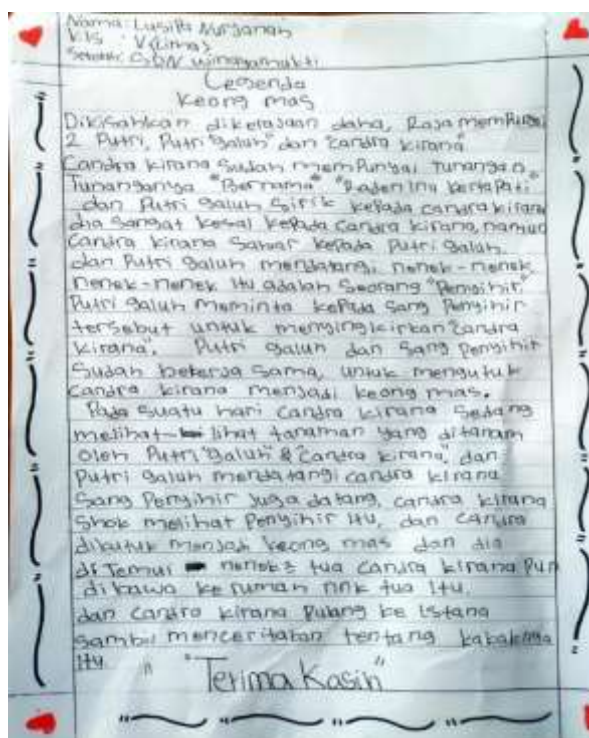 Nama: Lusita Nurjanah
Kls : V (Lima)
Sekolah: SDN winayamukti
Legenda
Keong mas
Dikisahkan dikerajaan daha, Raja mempunyai
2 Putri, Putri "galuh" dan "Candra kirana"
Candra kirana sudah mempunyai tunangan,
Tunangannya "Bernama" "Raden inu kertapati"
dan Putri galuh sirik kepada candra kirana
dia sangat kesal kepada candra kirana, namun
Candra kirana sabar kepada Putri galuh.
dan Putri galuh mendatangi nenek-nenek,
nenek-nenek itu adalah seorang "Penyihir"
Putri galuh meminta kepada sang Penyihir
tersebut untuk menyingkirkan "Candra
kirana". Putri galuh dan sang Penyihir
sudah bekerja sama, untuk mengutuk
candra kirana menjadi keong mas.
Pada suatu hari candra kirana sedang
melihat-lihat tanaman yang ditanam
oleh Putri "galuh" & "Candra kirana", dan
Putri galuh mendatangi candra kirana
sang Penyihir juga datang, candra kirana
shok melihat Penyihir itu, dan candra
dikutuk menjadi keong mas dan dia
di Temui nenek2 tua candra kirana Pun
di bawa ke rumah nnk tua itu.
dan candra kirana Pulang ke istana
sambil menceritakan tentang kakaknya
itu.
"Terima Kasih"